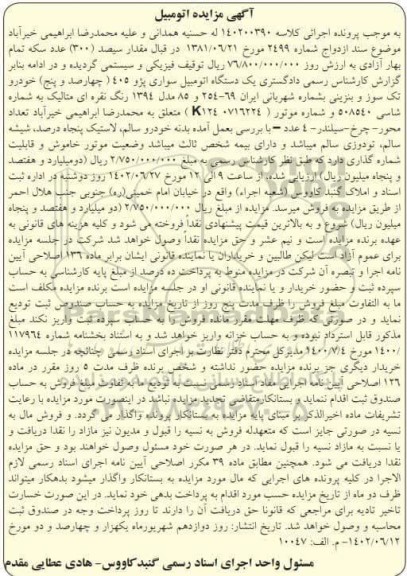 آگهی مزایده اتومبیل
به موجب پرونده اجرائی کلاسه ۱۴۰۲۰۰۳۹۰ له حسنیه همدانی و علیه محمدرضا ابراهیمی خیرآباد
موضوع سند ازدواج شماره ۲۴۹۹ مورخ ۱۳۸۱/۰۶/۲۱ در قبال مقدار سیصد (۳۰۰) عدد سکه تمام
بهار آزادی به ارزش روز ۷۶/۸۰۰/۰۰۰/۰۰۰ ریال توقیف فیزیکی و سیستمی گردیده و در ادامه بنابر
گزارش کارشناس رسمی دادگستری یک دستگاه اتومبیل سواری پژو ۴۰۵ ( چهارصد و پنج) خودرو
تک سوز و بنزینی بشماره شهربانی ایران ۶۹-۲۵۴ و ۸۵ مدل ۱۳۹۴ رنگ نقره ای متالیک به شماره
شاسی ۵۰۸۵۴۰ و شماره موتور ( K۱۲۴ ۰۷۱۶۲۲۴) متعلق به محمدرضا ابراهیمی خیرآباد تعداد
محور-چرخ-سیلندر- ۴ عدد - با بررسی بعمل آمده بدنه خودرو سالم، لاستیک پنجاه درصد، شیشه
سالم، تودوزی سالم میباشد و دارای بیمه شخص ثالث میباشد وضعیت موتور خاموش و قابلیت
شماره گذاری دارد که طبق نظر کارشناس رسمی به مبلغ ۲/۷۵۰/۰۰۰/۰۰۰ ریال (دومیلیارد و هفتصد
و پنجاه میلیون ریال) ارزیابی شده، از ساعت ۹ الی ۱۲ مورخ ۱۴۰۲/۰۶/۲۷ روز دوشنبه در اداره ثبت
اسناد و املاک گنبد کاووس (شعبه اجرا) واقع در خیابان امام خمینی(ره) جنوبی جنب هلال احمر
از طریق مزایده به فروش میرسد. مزایده از مبلغ ریال ۲/۷۵۰/۰۰۰/۰۰۰ (دو میلیارد و هفتصد و پنجاه
میلیون ریال) شروع و به بالاترین قیمت پیشنهادی نقدا فروخته می شود و کلیه هزینه های قانونی به
عهده برنده مزایده است و نیم عشر و حق مزایده نقدا وصول خواهد شد شرکت در جلسه مزایده
برای عموم آزاد است لیکن طالبین و خریداران یا نماینده قانونی ایشان برابر ماده ۱۳۶ اصلاحی آیین
نامه اجرا و تبصره آن شرکت در مزایده منوط به پرداخت ده درصد از مبلغ پایه کارشناسی به حساب
سپرده ثبت و حضور خریدار و یا نماینده قانونی او در جلسه مزایده است برنده مزایده مکلف است
ما به التفاوت مبلغ فروش را ظرف مدت پنج روز از تاریخ مزایده به حساب صندوق ثبت تودیع
نماید و در صورتی که ظرف مهلت مقرر مانده فروش را به حساب سپرده ثبت واریز نکند مبلغ
مذکور قابل استرداد نبوده و به حساب خزانه واریز خواهد شد و به استناد بخشنامه شماره ۱۱۷۹۶۴
/۱۴۰۰ مورخ ۱۴۰۰/۷/۴ مدیرکل محترم دفتر نظارت بر اجرای اسناد رسمی چنانچه در جلسه مزایده
خریدار دیگری جز برنده مزایده حضور نداشته و شخص برنده ظرف مدت ۵ روز مقرر در ماده
۱۳۶ اصلاحی آیین نامه اجرای مفاد اسناد رسمی نسبت به تودیع مابه تفاوت مبلغ فروش به حساب
صندوق ثبت اقدام ننماید و بستانکار متقاضی تجدید مزایده نباشد در اینصورت مورد مزایده با رعایت
تشریفات ماده اخیرالذکر از مبنای پایه مزایده به بستانکار برنده واگذار می گردد. و فروش مال به
نسیه در صورتی جایز است که متعهدله فروش به نسیه را قبول و مدیون نیز مازاد را نقدا دریافت و
یا نسبت به مازاد نسیه را قبول نماید. در هر صورت خود مسئول وصول خواهند بود و حق مزایده
نقدا دریافت می شود. همچنین مطابق ماده ۳۹ مکرر اصلاحی آیین نامه اجرای اسناد رسمی لازم
الاجرا در کلیه پرونده های اجرایی که مال مورد مزایده به بستانکار واگذار میشود بدهکار میتواند
ظرف دو ماه از تاریخ مزایده حسب مورد اقدام به پرداخت بدهی خود نماید. در این صورت خسارت
تاخیر تادیه برای مراجعی که قانونا حق دریافت آن را دارند تا روز پرداخت وجه در صندوق ثبت
محاسبه و وصول خواهد شد. تاریخ انتشار: روز دوازدهم شهریورماه یکهزار و چهارصد و دو مورخ
۱۴۰۲/۰۶/۱۲- م. الف: ۱۰۰۴۷
مسئول واحد اجرای اسناد رسمی گنبدکاووس- هادی عطایی مقدم